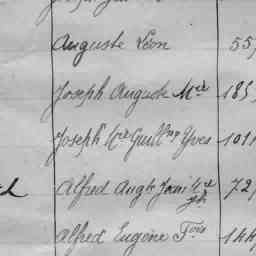 Auguste Léon 55
Joseph Auguste Mie 185
Joseph Guilme Yves 101
Alfred Augte 72
Alfred Eugène Fois 144